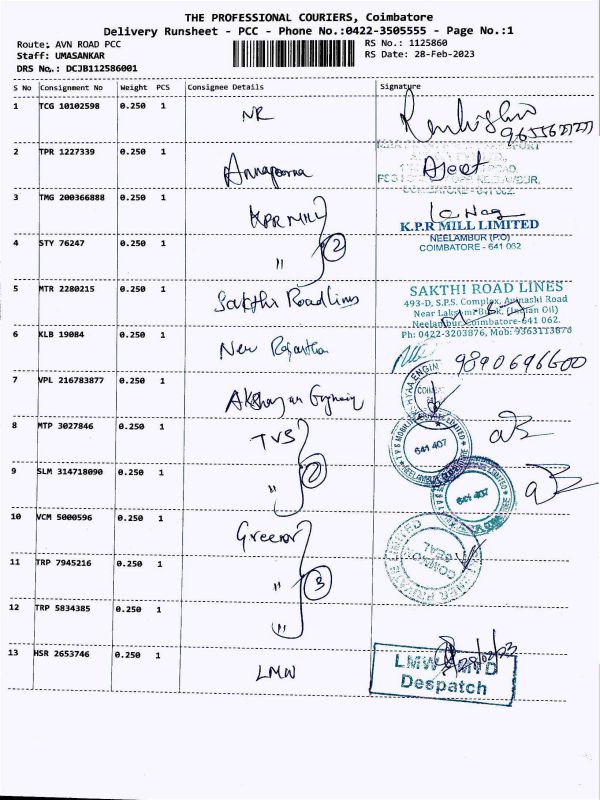 THE PROFESSIONAL COURIERS, Coimbatore
Delivery Runsheet - PCC - Phone No.:0422-3505555 - Page No.:1
Route: AVN ROAD PCC
RS No.: 1125860
Staff: UMASANKAR
RS Date: 28-Feb-2023
DRS No.: DCJB112586001
S No Consignment No Weight PCS Consignee Details Signature
1 TCG 10102598 0.250 1 NR
9655627277
2 TPR 1227339 0.250 1 Annapoorna Ajeet
COIMBATORE - 641 062.
3 TMG 200366888 0.250 1 KPR MILL
K.P.R MILL LIMITED
NEELAMBUR (P.O)
COIMBATORE - 641 062
4 STY 76247 0.250 1 " 2
5 MTR 2280215 0.250 1 Sakthi Roadlines
SAKTHI ROAD LINES
493-D, S.P.S. Complex, Avinashi Road
Near Lakshmi Bunk, (Indian Oil)
Neelambur, Coimbatore-641 062.
Ph: 0422-3203876, Mob: 9363113876
6 KLB 19084 0.250 1 New Rajasthan 9890696600
7 VPL 216783877 0.250 1
8 MTP 3027846 0.250 1 TVS
641 407
9 SLM 314718090 0.250 1 " 2
641 407
10 VCM 5000596 0.250 1
COMMON SEAL
11 TRP 7945216 0.250 1 " 3
12 TRP 5834385 0.250 1 "
13 HSR 2653746 0.250 1 LMW
28/02/23
LMW
Despatch